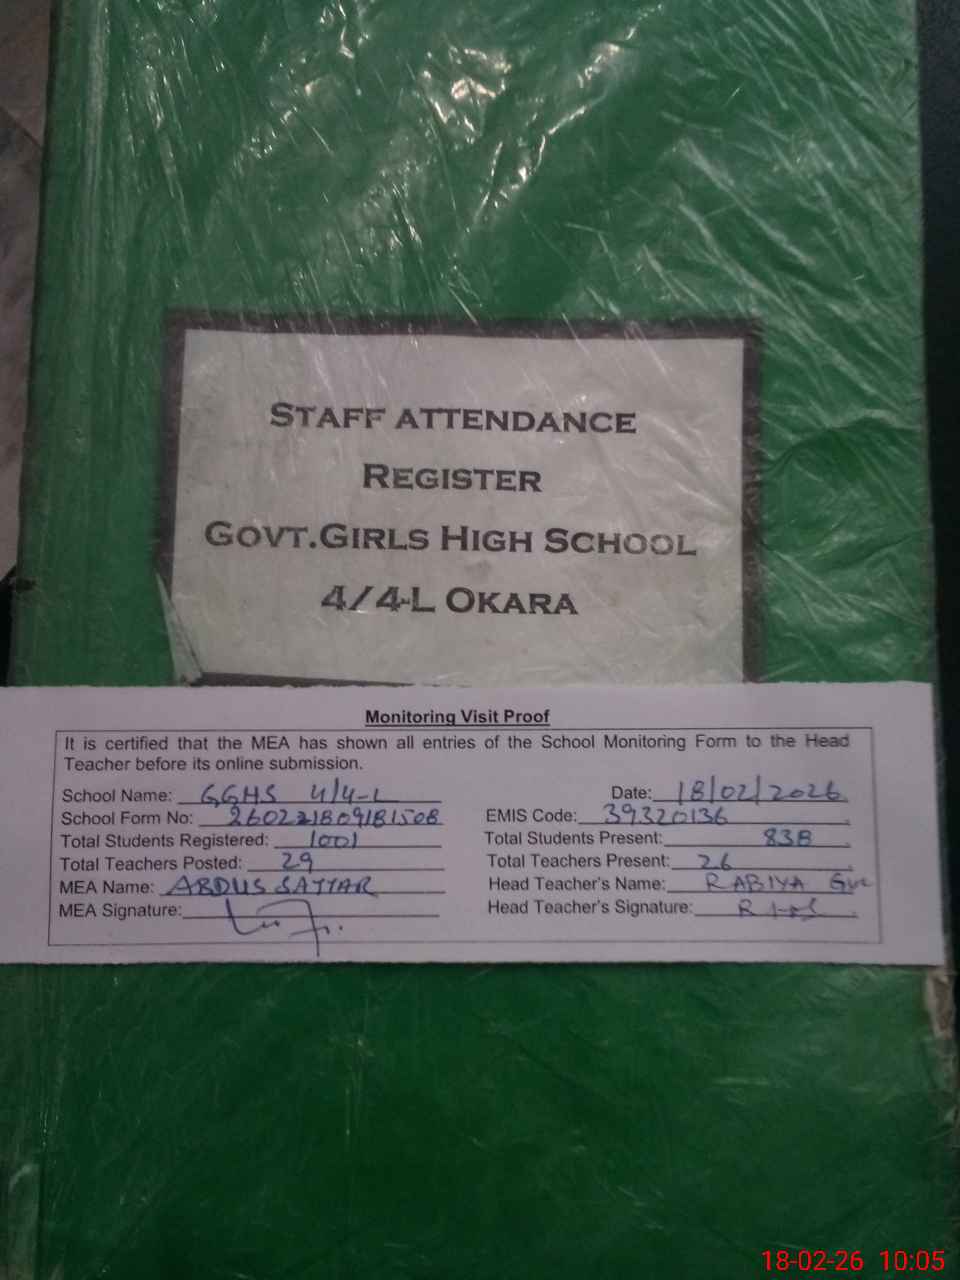 STAFF ATTENDANCE
REGISTER
GOVT.GIRLS HIGH SCHOOL
4/4-L OKARA
Monitoring Visit Proof
It is certified that the MEA has shown all entries of the School Monitoring Form to the Head
Teacher before its online submission.
School Name: GGHS 4/4-L Date: 18/02/2026
School Form No: EMIS Code: 39320136
Total Students Registered: 1001 Total Students Present: 838
Total Teachers Posted: 29 Total Teachers Present: 26
MEA Name: ABDUS SATTAR Head Teacher's Name: RABIYA
MEA Signature: Head Teacher's Signature:
18-02-26 10:05